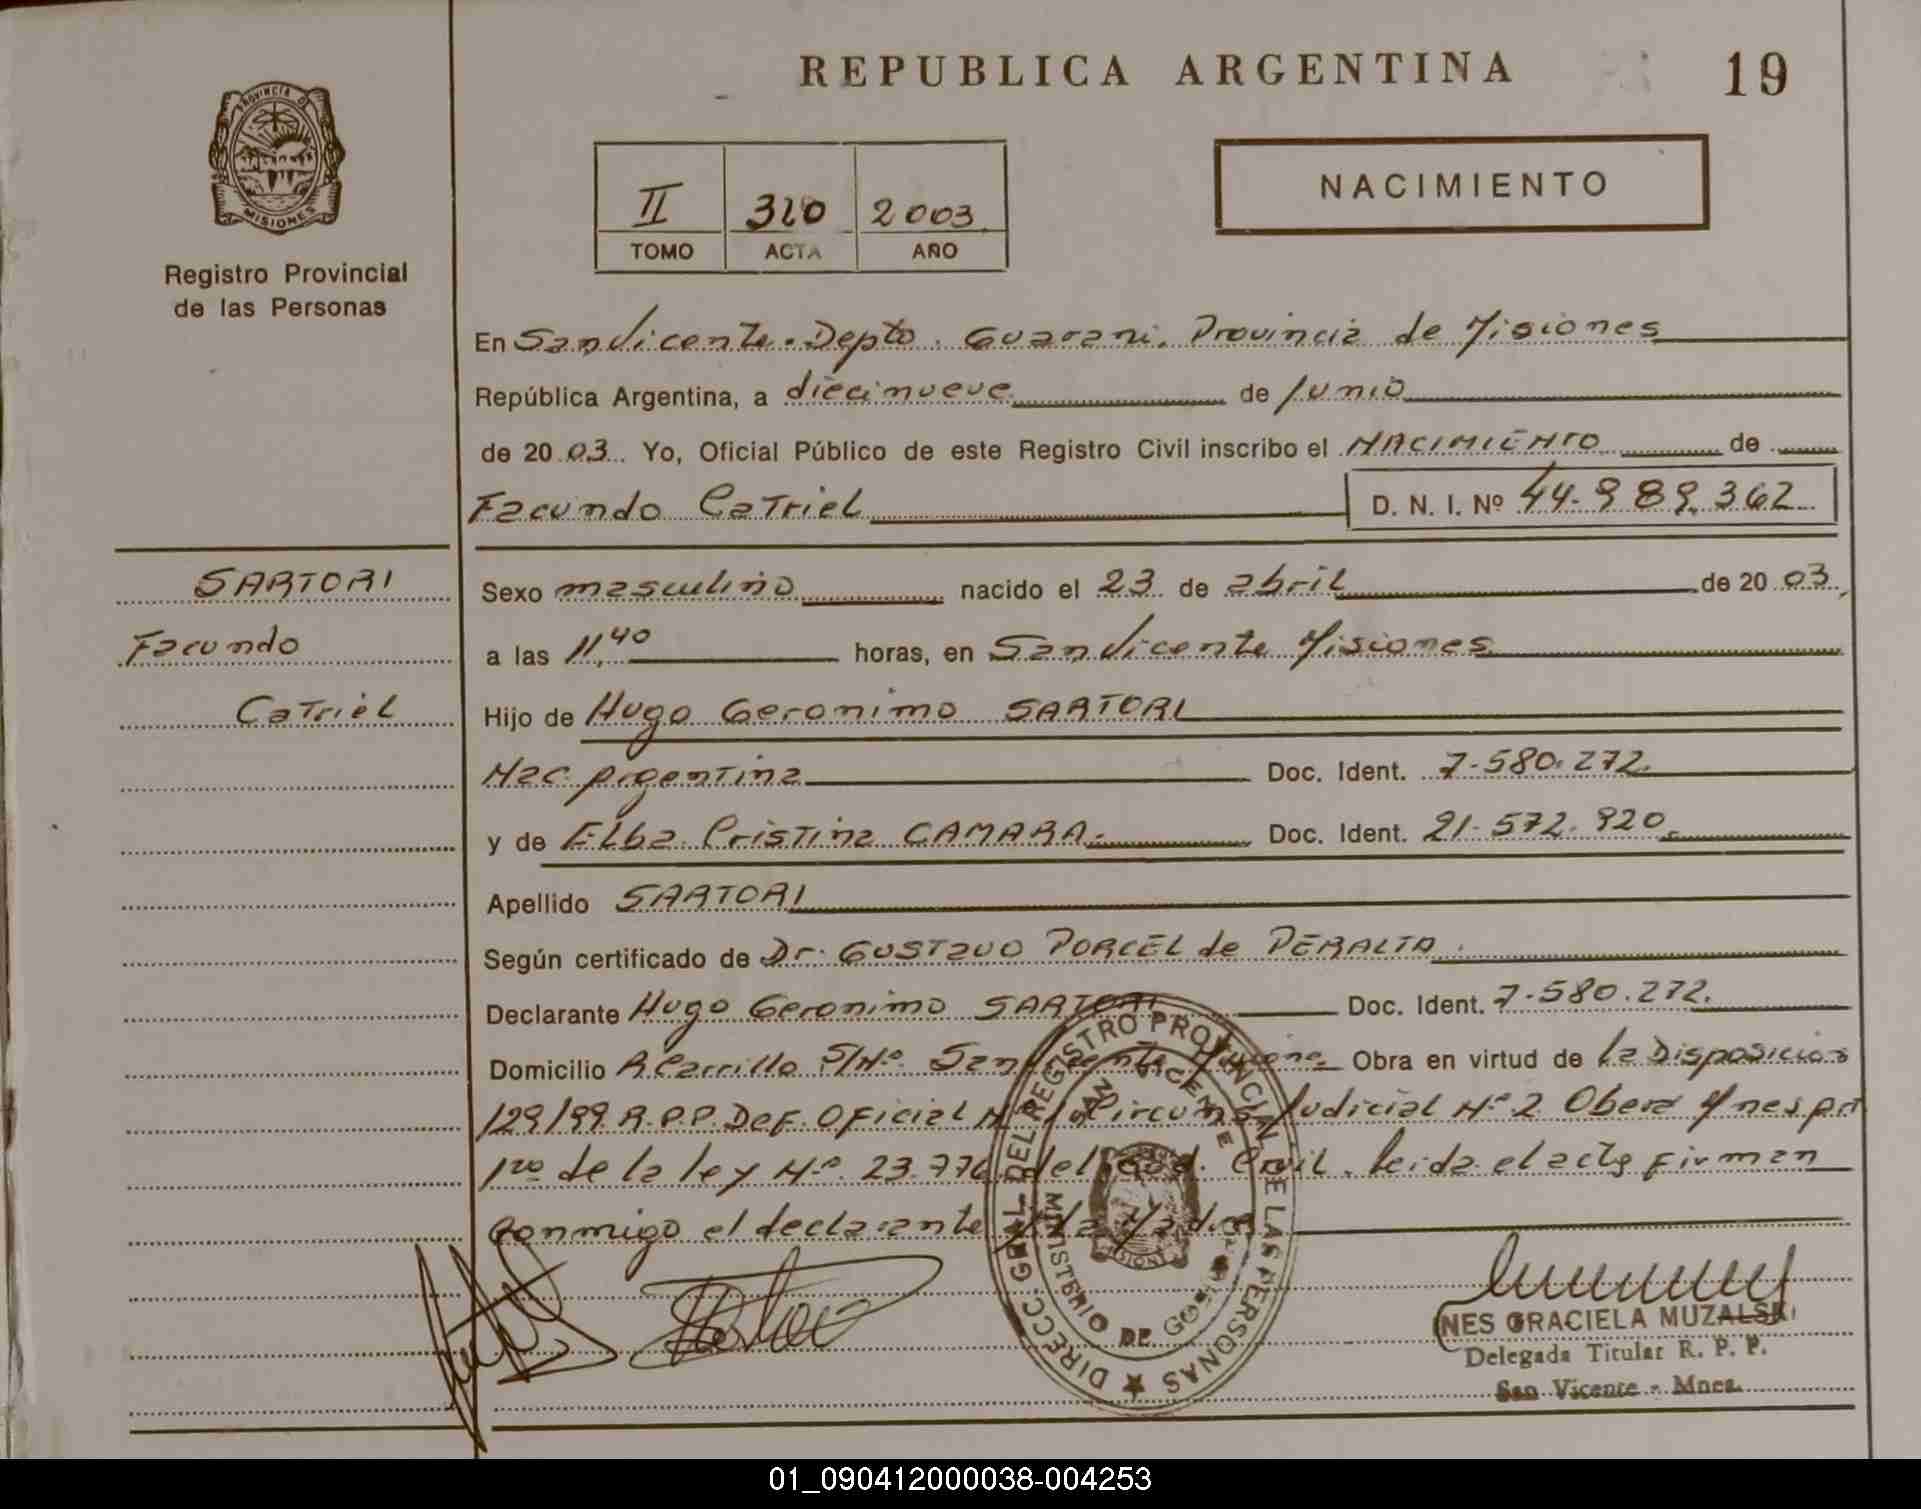 REPUBLICA ARGENTINA
19
PROVINCIA DE
MISIONES
Registro Provincial
de las Personas
II 310 2003
TOMO ACTA AÑO
NACIMIENTO
En San Vicente. Depto. Guarani. Provincia de Misiones
República Argentina, a diecinueve de Junio
de 2003 Yo, Oficial Público de este Registro Civil inscribo el NACIMIENTO de
Facundo Catriel D. N. I. Nº 44.989.362
SARTORI
Facundo
Catriel
Sexo masculino nacido el 23 de abril de 2003,
a las 11,40 horas, en San Vicente Misiones
Hijo de Hugo Geronimo SARTORI
Nac. Argentina Doc. Ident. 7.580.272.
y de Elba Cristina CAMARA. Doc. Ident. 21.572.920.
Apellido SARTORI
Según certificado de Dr. Gustavo PORCEL de PERALTA.
Declarante Hugo Geronimo SARTORI Doc. Ident. 7.580.272.
Domicilio R. Carrillo S/Nº. San Vicente Misiones Obra en virtud de la Disposición
129/99. R.P.P. Def. Oficial Circuns. Judicial Nº 2 Obera Mnes art
1ro de la ley Nº 23.776 del Cod. Civil. leida el acta firman
conmigo el declarante y la Madre
DIRECC. GRAL. DEL REGISTRO PROVINCIAL DE LAS PERSONAS
SAN VICENTE
MINISTERIO DE GOBIERNO
MISIONES
INES GRACIELA MUZALSKI
Delegada Titular R. P. P.
San Vicente - Mnes.
01_090412000038-004253